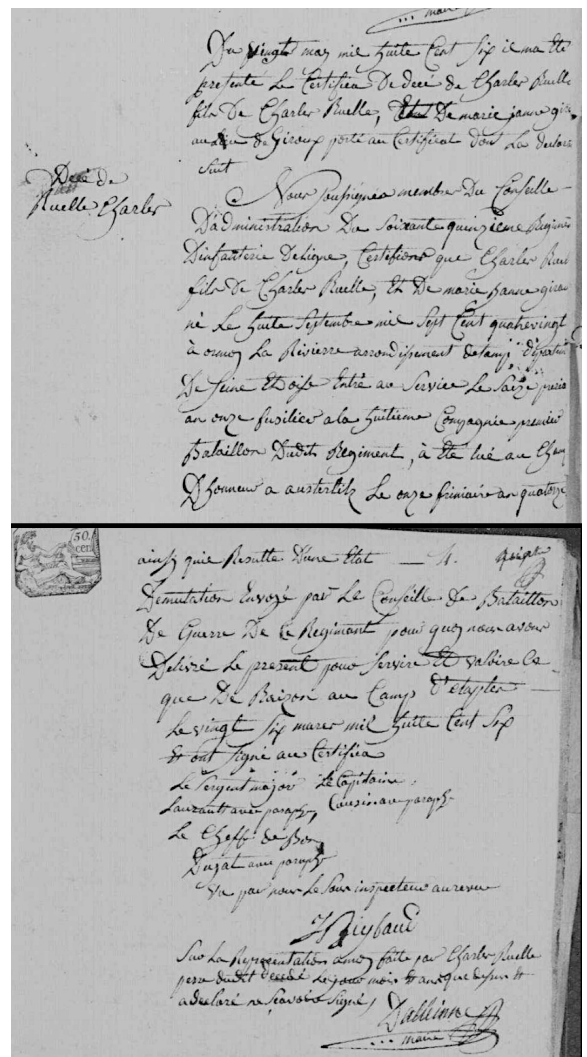 ... maire
Du vingt may mil huite Cent Six il ma Ete
presente Le Certifica De decé de Charles Ruelle
fils De Charles Ruelle, Et De marie janne
de Giroux porté au Certificat dont La
Suit
Decé de
Ruelle Charles
Nous Soussignes membre Du Conseille
D'administration Du Soixante quinzieme Regimen
Dinfanterie Deligne, Certifions que Charles Ruel
fils De Charles Ruelle, Et De marie Janne girou
né Le huite Septembre mil Sept Cent quatrevingt
à ormoy La Rivierre arrondissement detamp
De Seine Etoise Entré au Service Le Saize
an onze fusilier a la huitieme Compagnie premier
Bataillon Dudit Regiment, à Eté tué au Cham
Dhonneur a austerlitz Le onze frimaire an quatorze
50
cent
ainsy quie Resulte D'une Etat — 4.
Demutation Envoyé par Le Conseille De Bataillon
De Guerre De Ce Regimant pour quoy nous avons
Delivré Le present pour Servire Et valoire Ce
que De Raizon au Camp D'etaples
Le vingt Six marer mil huite Cent Six
Et ont Signé au Certifica
Le Sergent major Le Capitaine,
Laurant avec paraphe, Cousin avec paraphe
Le Cheff de Bon
Dugat avec paraphe
Vu par nous Le Sous inspecteur au revue
Sur La Representation amoy faite par Charles Ruelle
perre dudit decedé Le jour mois Et an que desus Et
a declaré ne Scavoir Signé,
Dallienne
... maire